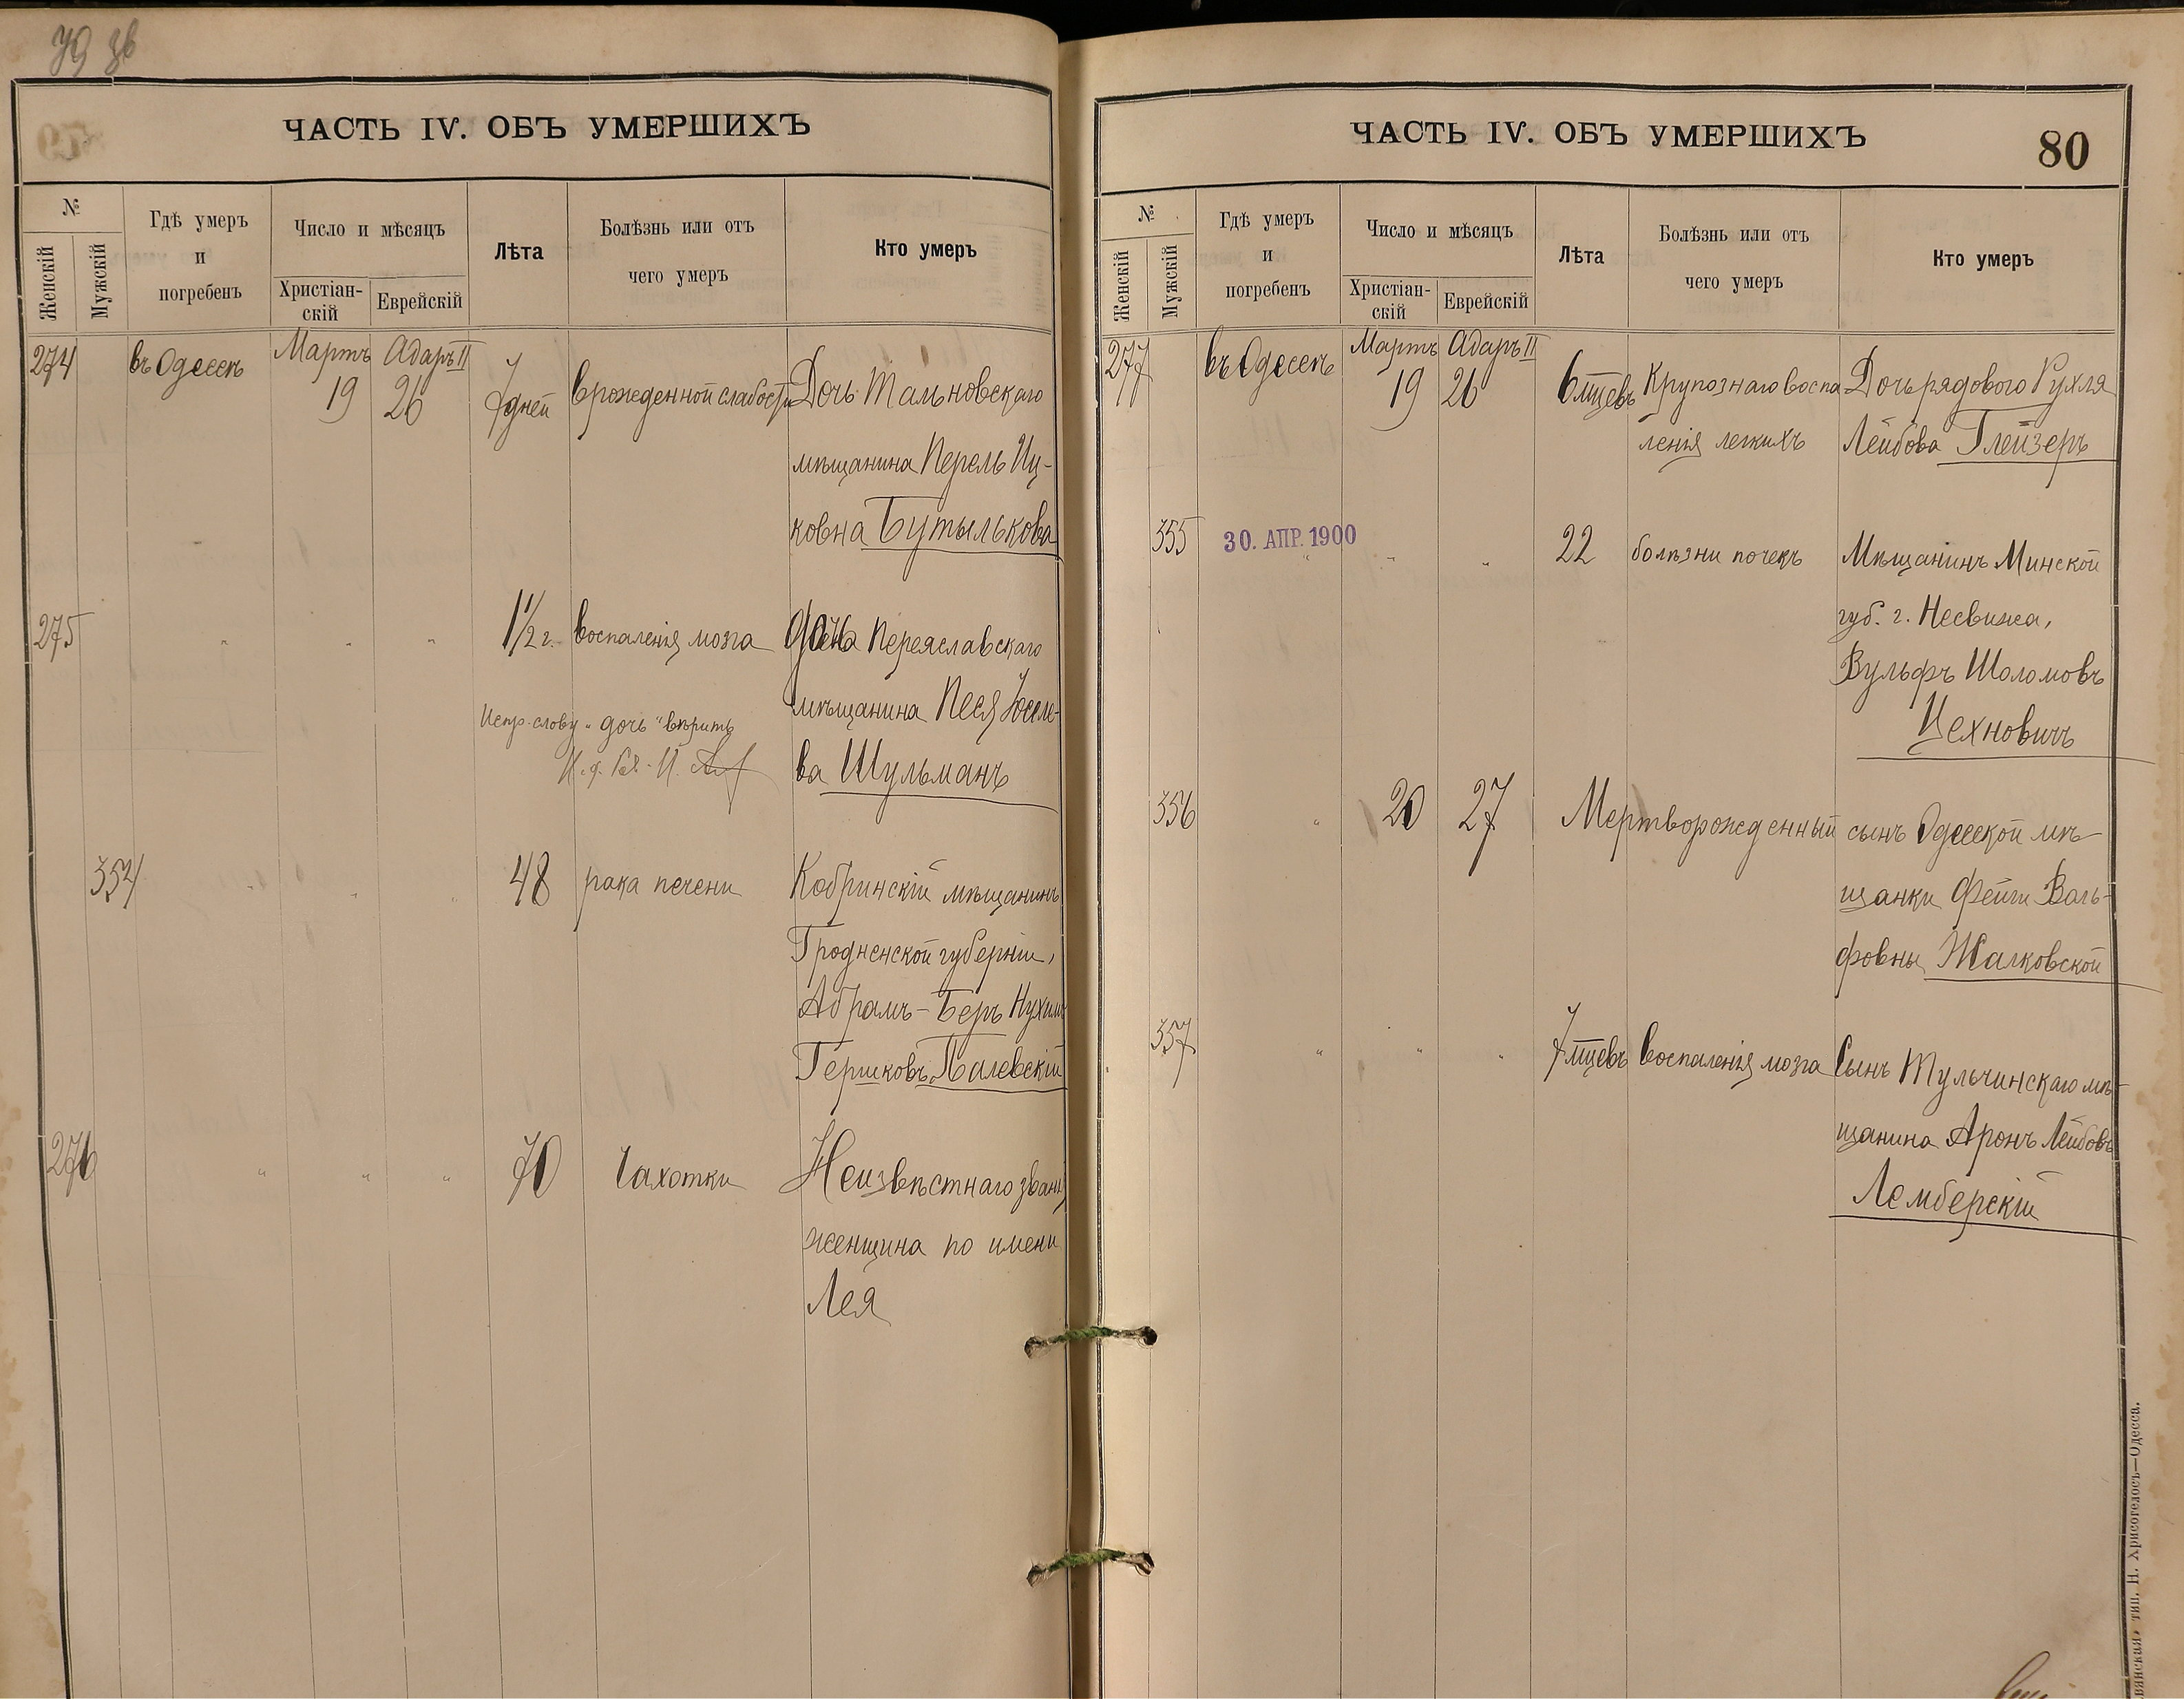 79 зв
ЧАСТЬ IV. ОБЪ УМЕРШИХЪ
№
Женскій
Мужскій
Гдѣ умеръ
и
погребенъ
Число и мѣсяцъ
Христіан-
скій
Еврейскій
Лѣта
Болѣзнь или отъ
чего умеръ
Кто умеръ
274 въ Одессѣ Мартъ 19 Адаръ II 26 7 дней врожденной слабости Дочь Тальновскаго
мѣщанина Перель Иц-
ковна Бутылькова
275 " " " 1½ г. воспаленія мозга дочь Переяславскаго
мѣщанина Песя Іосе-
ва Шульманъ
Испр. слову "дочь" вѣрить
354 " " " 48 рака печени Кобринскій мѣщанинъ
Гродненской губерніи,
Абрамъ-Беръ Нухимъ
Гершковъ Палевскій
276 " " " 70 Чахотки Неизвѣстнаго званія
женщина по имени
Лея
ЧАСТЬ IV. ОБЪ УМЕРШИХЪ
80
№
Женскій
Мужскій
Гдѣ умеръ
и
погребенъ
Число и мѣсяцъ
Христіан-
скій
Еврейскій
Лѣта
Болѣзнь или отъ
чего умеръ
Кто умеръ
277 въ Одессѣ Мартъ 19 Адаръ II 26 6 мцевъ Крупознаго воспа Дочь рядового Рухля
ленія легкихъ Лейбова Глейзеръ
355 30. АПР. 1900 " " " 22 болѣзни почекъ Мѣщанинъ Минской
губ. г. Несвижа,
Вульфъ Шоломовъ
Цехновичъ
356 " 20 27 Мертворожденный сынъ Одесской мѣ-
щанки Фейги Валь-
фовны Жалковской
357 " " " 7 мцевъ воспаленія мозга Сынъ Тульчинскаго мѣ-
щанина Аронъ Лейбовъ
Лемберскій
тип. Н. Хрисогелосъ—Одесса.